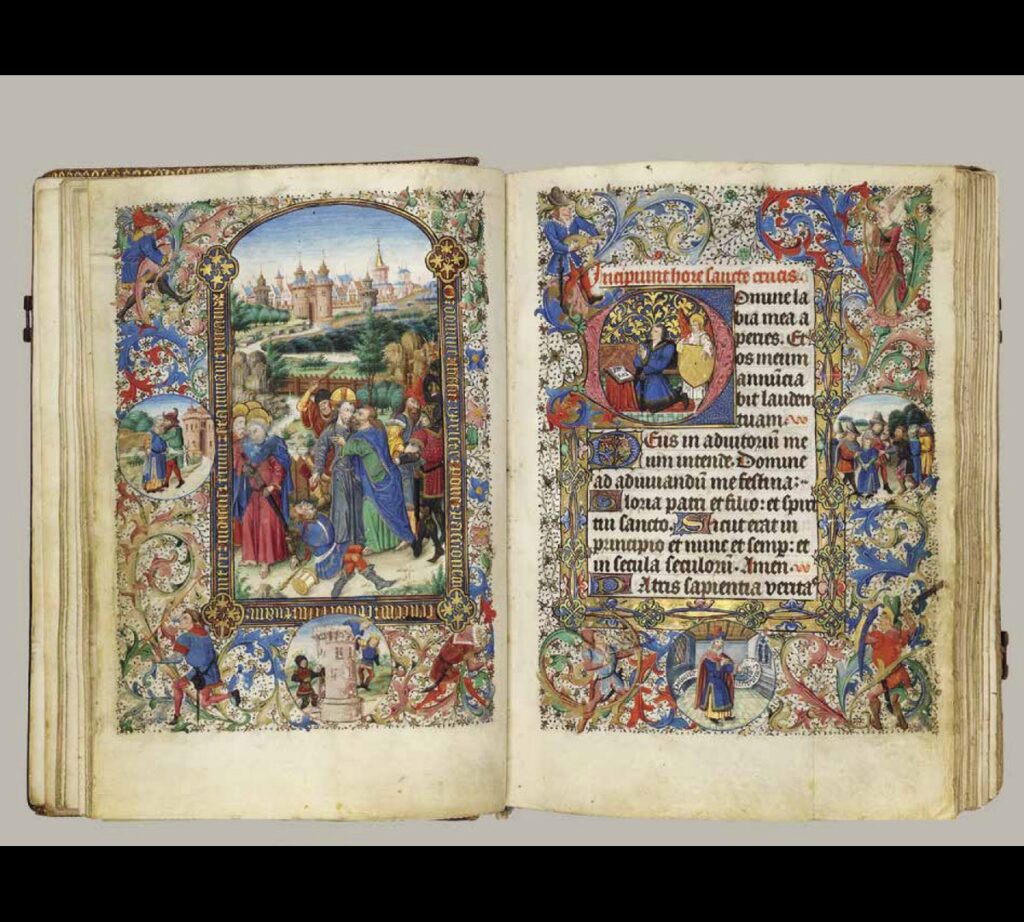 Incipiunt hore sancte crucis.
Domine la
bia mea a
peries. Et
os meum
annūcia
bit laudem
tuam.
Deus in adiutoriū me
um intende. Domine
ad adiuuandū me festina:
Gloria patri et filio: et spiri
tui sancto. Sicut erat in
principio et nunc et semp: et
in secula seculorū. Amen.
Patris sapientia veritaꝰ